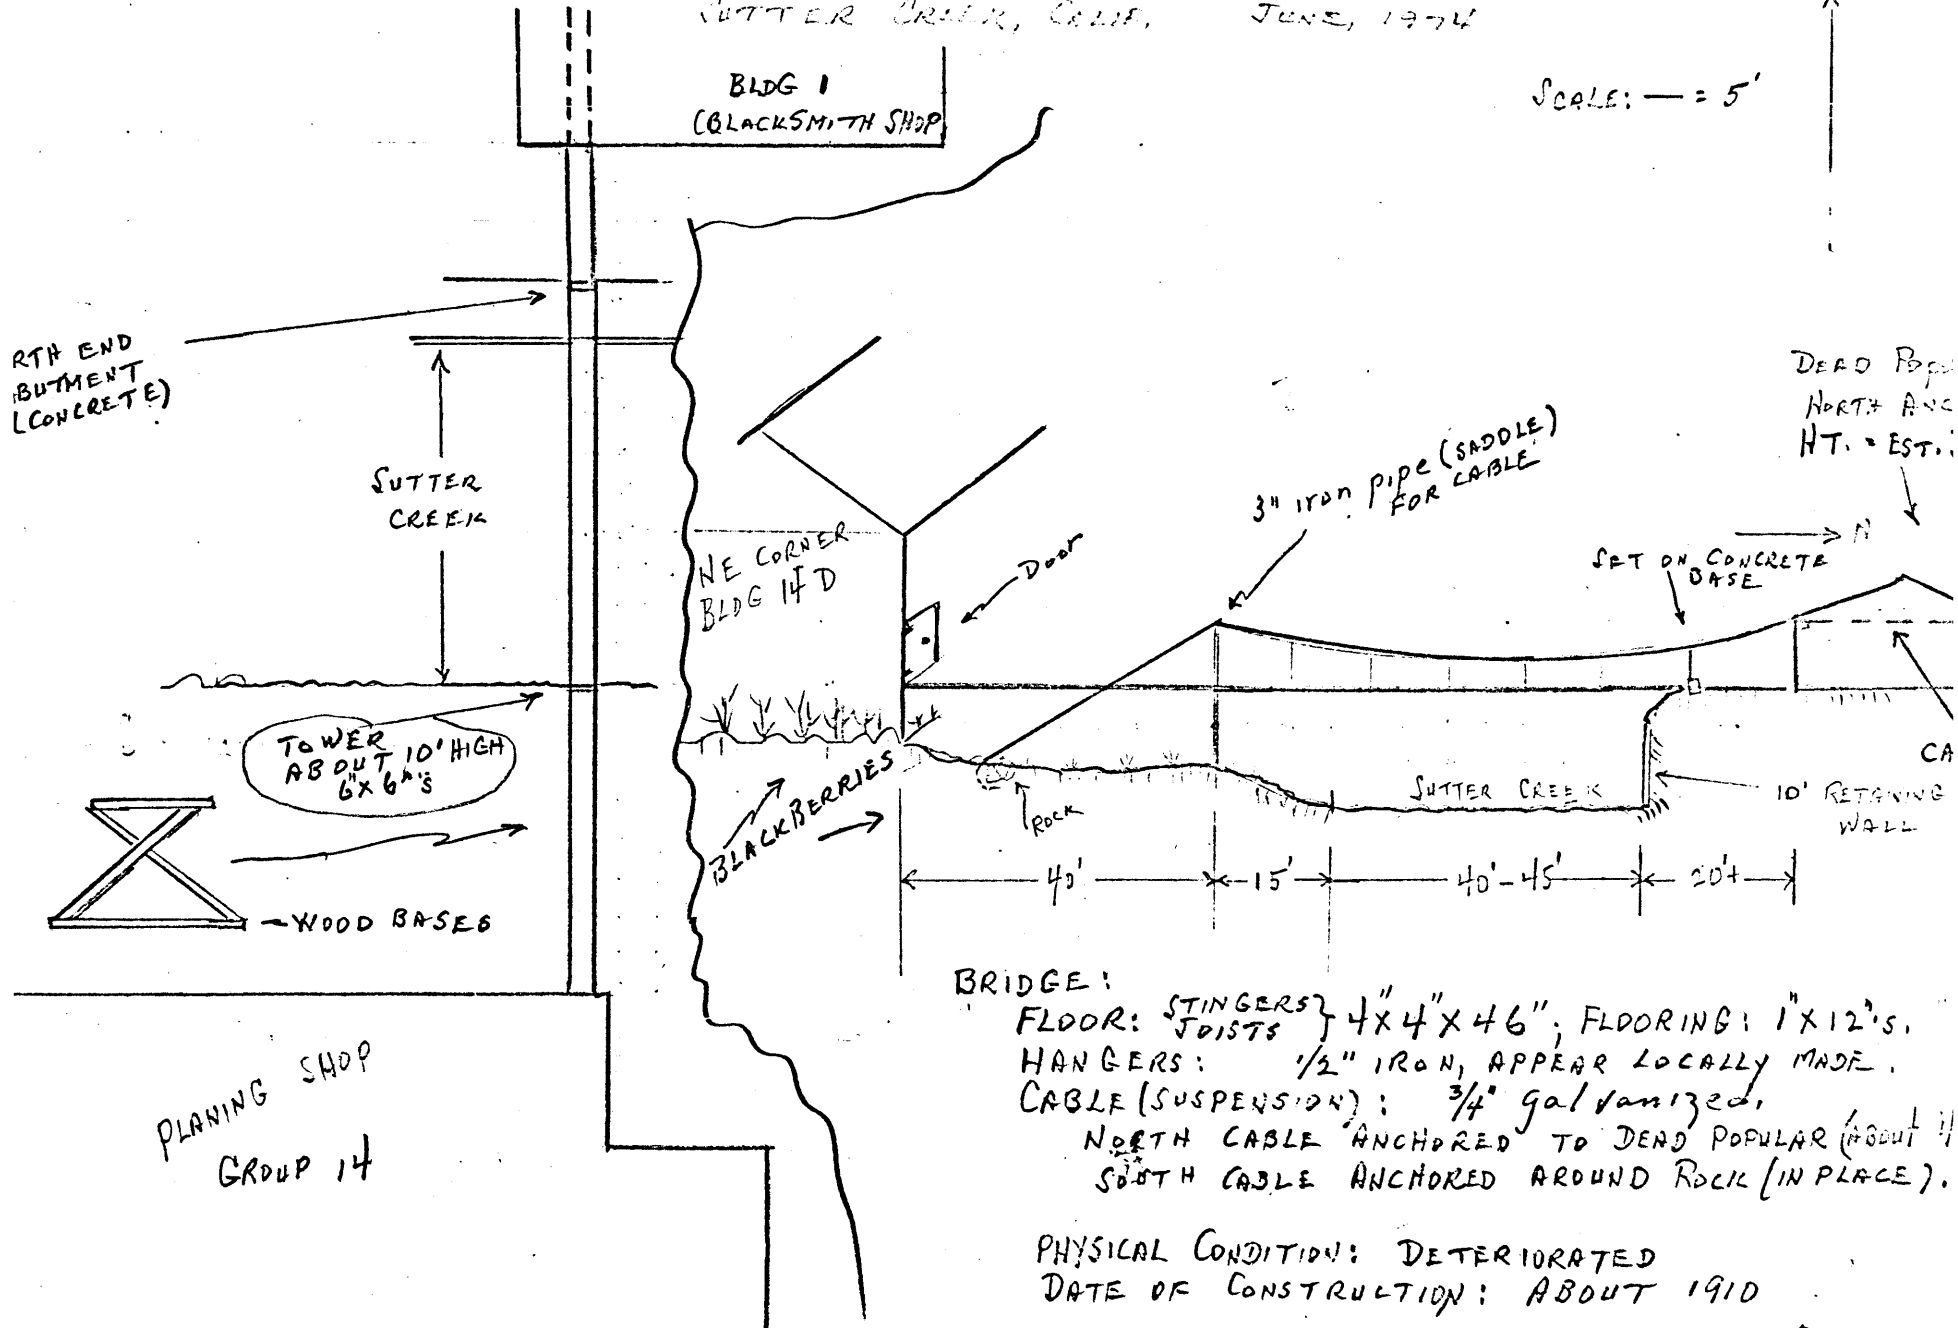 SUTTER CREEK, CALIF. JUNE, 1974
BLDG 1
(BLACKSMITH SHOP
SCALE: — = 5'
RTH END
BUTMENT
(CONCRETE)
SUTTER
CREEK
NE CORNER
BLDG 14 D
DOOR
3" iron pipe (SADDLE)
FOR CABLE
DEAD POPU
NORTH ANC
HT. = EST.
N
SET ON CONCRETE
BASE
TOWER
ABOUT 10' HIGH
6" X 6"'s
WOOD BASES
BLACKBERRIES
ROCK
SUTTER CREEK
CA
10' RETAINING
WALL
40' 15' 40'-45' 20'+
BRIDGE:
FLOOR: STINGERS
JOISTS } 4" X 4" X 46"; FLOORING: 1" X 12"'s.
HANGERS: 1/2" IRON, APPEAR LOCALLY MADE.
CABLE (SUSPENSION): 3/4" galvanized.
NORTH CABLE ANCHORED TO DEAD POPULAR (ABOUT
SOUTH CABLE ANCHORED AROUND ROCK (IN PLACE).
PHYSICAL CONDITION: DETERIORATED
DATE OF CONSTRUCTION: ABOUT 1910
PLANING SHOP
GROUP 14